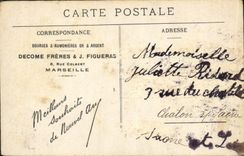 CARTE POSTALE
CORRESPONDANCE
BOURSES & AUMONIÈRES OR & ARGENT
DECOME FRÈRES & J. FIGUERAS
8, RUE COLBERT
MARSEILLE
Meilleurs
souhaits
de Nouvel An
ADRESSE
Mademoiselle
Juliette
3 rue du
Chalon s/ Saône
Saône et L.